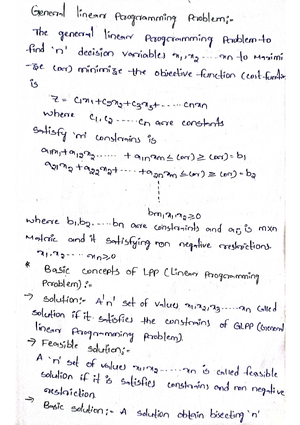 General linear Programming Problem:-
The general linear Programming Problem to
find 'n' decision variables x1, x2 ...... xn to Maximi
-ze (or) minimize the objective function (cost function
is
Z = C1x1 + C2x2 + C3x3 + ...... cnxn
where C1, C2 ...... Cn are constants
Satisfy 'm' constrains is
a11x1 + a12x2 ...... + a1nxn ≤ (or) ≥ (or) = b1
a21x1 + a22x2 + ...... + a2nxn ≤ (or) ≥ (or) = b2
bm, x1, x2 ≥ 0
where b1, b2 ..... bn are constraints and aij is mxn
Matrix and it satisfying non negative restrictions
x1, x2 ...... xn ≥ 0
* Basic concepts of LPP (Linear Programming
Problem) :-
→ solution:- A 'n' set of values x1, x2, x3 ...... xn called
solution if it satisfies the constrains of GLPP (General
linear Programming Problem).
→ Feasible solution:-
A 'n' set of values x1, x2 ...... xn is called feasible
solution if it is satisfies constrains and non negative
restriction
→ Basic solution:- A solution obtain bisecting 'n'